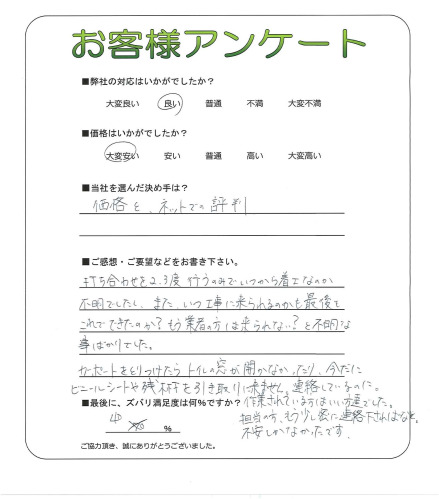 お客様アンケート
■弊社の対応はいかがでしたか？
大変良い 良い 普通 不満 大変不満
■価格はいかがでしたか？
大変安い 安い 普通 高い 大変高い
■当社を選んだ決め手は？
価格と、ネットでの評判
■ご感想・ご要望などをお書き下さい。
打ち合わせを2.3度行うのみでいつから着工なのか
不明でしたし、また、いつ工事に来られるのかも最後も
これでできたのか？もう業者の方は来られない？と不明な
事ばかりでした。
カーポートをとりつけたらトイレの窓が開かなかったり、今だに
ビニールシートや残材を引き取りに来ません。連絡しているのに。
■最後に、ズバリ満足度は何%ですか？
作業されている方はいい方達でした。
担当の方、もう少し密に連絡下されば
不安しかなかったです。
40 %
ご協力頂き、誠にありがとうございました。